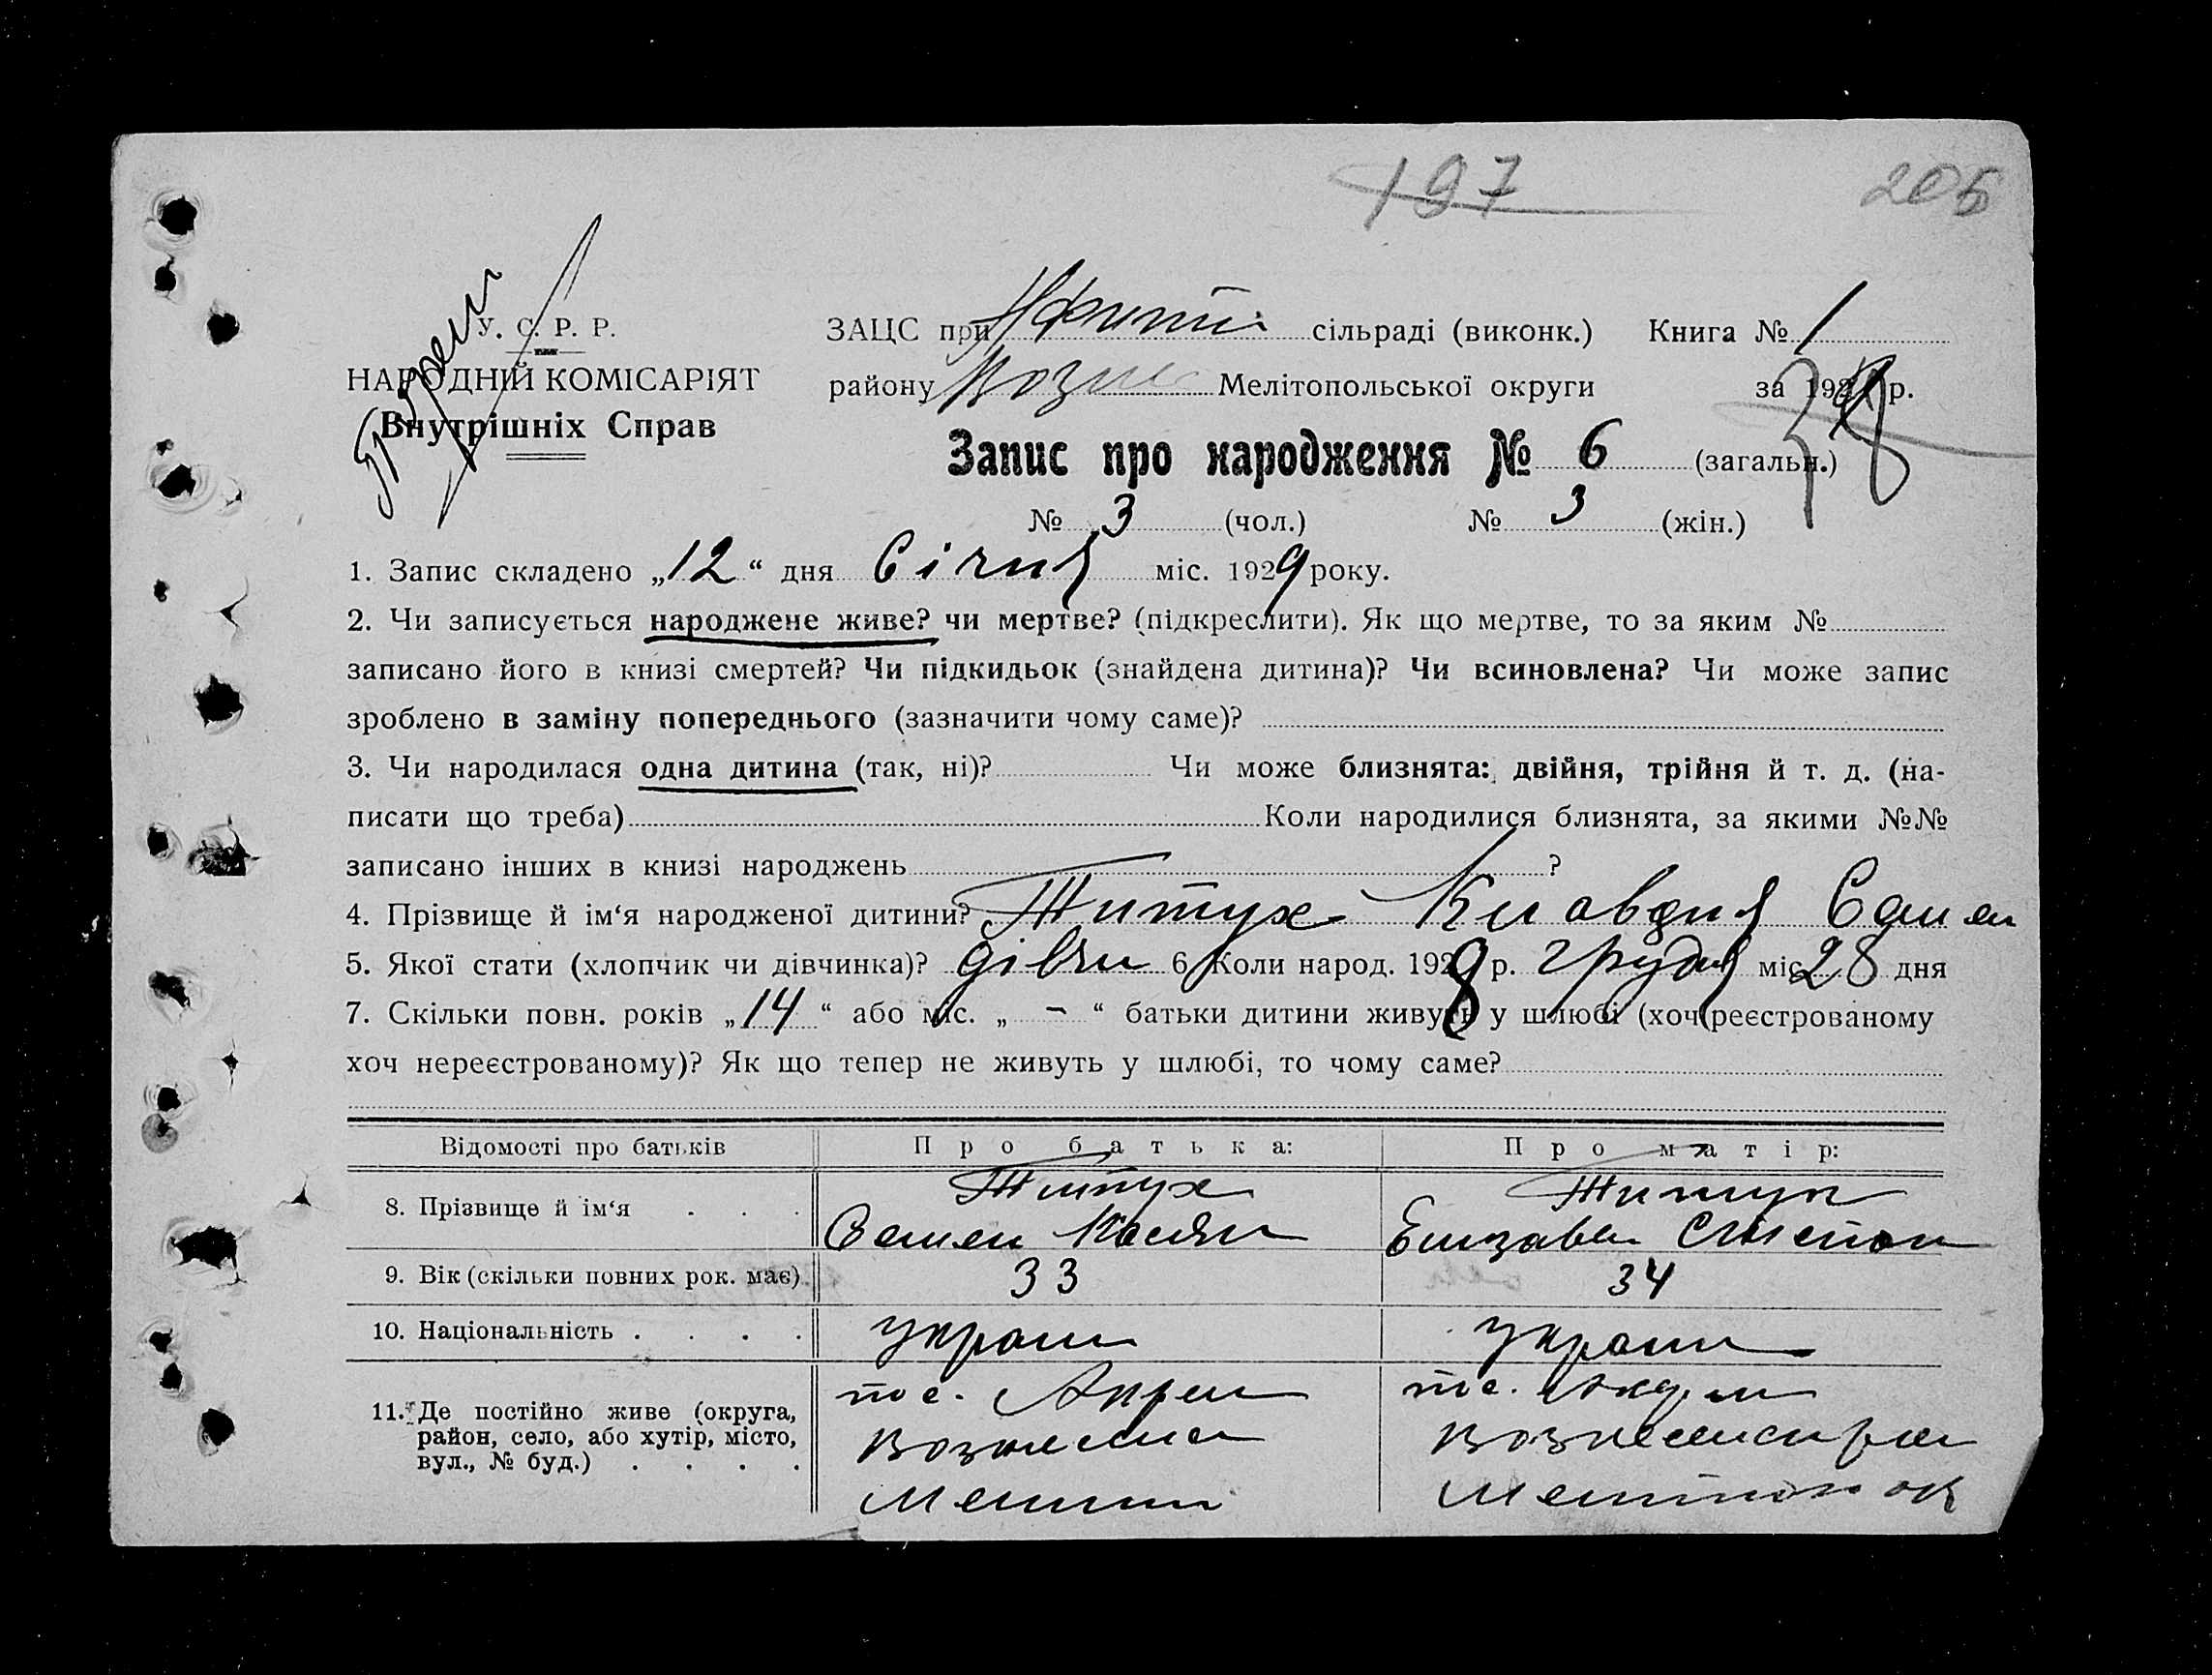 197 205
У. С. Р. Р.
НАРОДНІЙ КОМІСАРІЯТ
Внутрішніх Справ
ЗАЦС при сільраді (виконк.) Книга № 1
району Возне Мелітопольської округи за 192 р.
Запис про народження № 6 (загальн.)
№ 3 (чол.) № 3 (жін.)
1. Запис складено „12“ дня Січня міс. 1929 року.
2. Чи записується народжене живе? чи мертве? (підкреслити). Як що мертве, то за яким №
записано його в книзі смертей? Чи підкидьок (знайдена дитина)? Чи всиновлена? Чи може запис
зроблено в заміну попереднього (зазначити чому саме)?
3. Чи народилася одна дитина (так, ні)? Чи може близнята: двійня, трійня й т. д. (на-
писати що треба) Коли народилися близнята, за якими №№
записано інших в книзі народжень ?
4. Прізвище й ім‘я народженої дитини? Титух Клавдия Семен
5. Якої стати (хлопчик чи дівчинка)? дівчи 6. Коли народ. 1928 р. грудня міс. 28 дня
7. Скільки повн. років „14“ або міс. „ – “ батьки дитини живуть у шлюбі (хоч реєстрованому
хоч нереєстрованому)? Як що тепер не живуть у шлюбі, то чому саме?
Відомості про батьків Про батька: Про матір:
8. Прізвище й ім‘я . . . Титух Титух
Семен Касян Елизаве Степан
9. Вік (скільки повних рок. має) 33 34
10. Національність . . . . украин украин
11. Де постійно живе (округа, пос. пос.
район, село, або хутір, місто, Вознесенс Вознесенс
вул., № буд.) . . . . Мелитоп Мелитоп ок